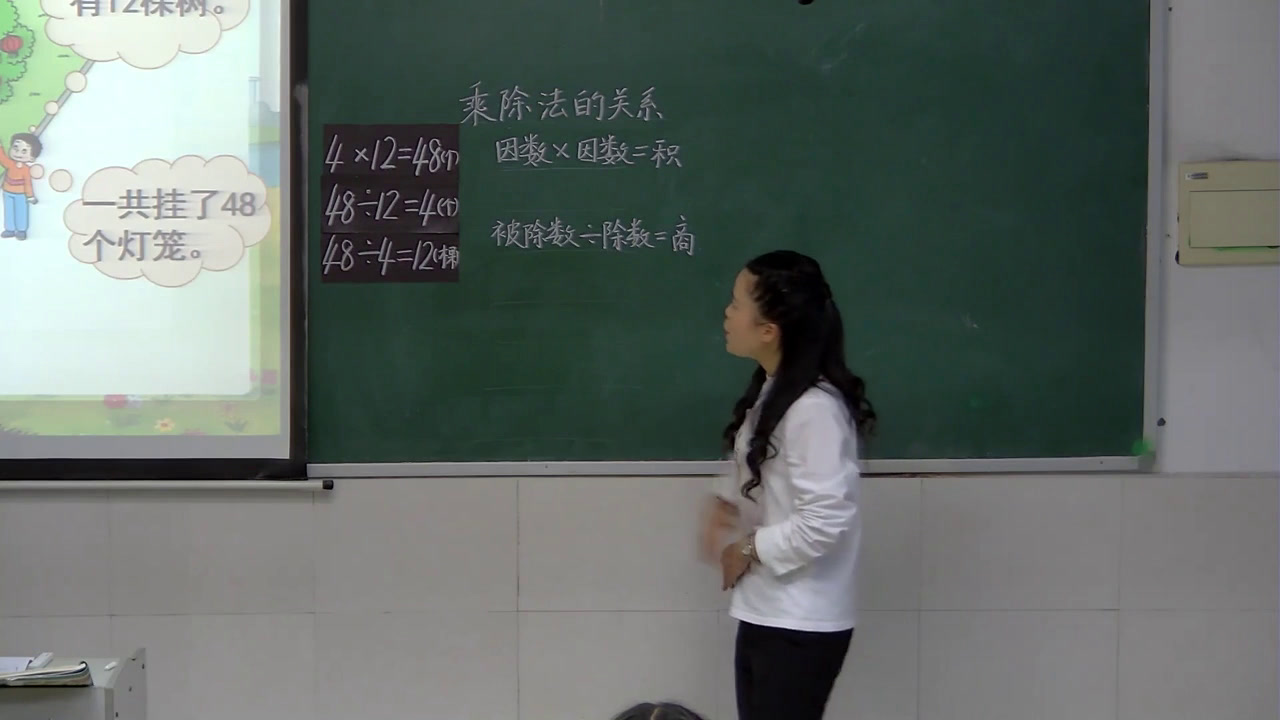 有12棵树。
一共挂了48
个灯笼。
乘除法的关系
4×12=48(个)
48÷12=4(个)
48÷4=12(棵)
因数×因数=积
被除数÷除数=商